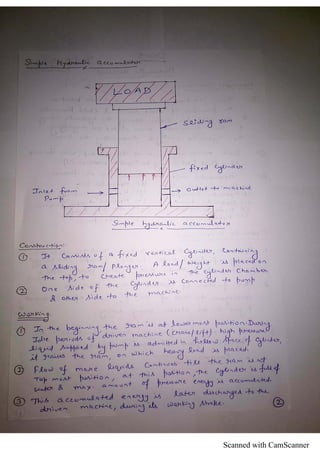 Simple Hydraulic accumulator
LOAD
Sliding ram
fixed Cylinder
Inlet from
Pump
outlet to machine
Simple hydraulic accumulator
Construction:
① It Consists of a fixed vertical Cylinder, Containing
a sliding ram/ Plunger. A load/ weight is placed on
the top, to create pressure in the cylinder chamber.
② One side of the Cylinder is connected to pump
& other side to the machine
Working
① In the beginning the ram is at lowermost position. During
Idle periods of driven machine (crane/lift) high pressure
liquid supplied by pump is admitted in hollow space of Cylinder,
it raises the ram, on which heavy load is placed.
② Flow of more liquids Continues till the ram is at
Top most position, at this position, the Cylinder is full of
water & max. amount of pressure energy is accumulated
③ This accumulated energy is later discharged to the
driven machine, during its working stroke.
②
Scanned with CamScanner